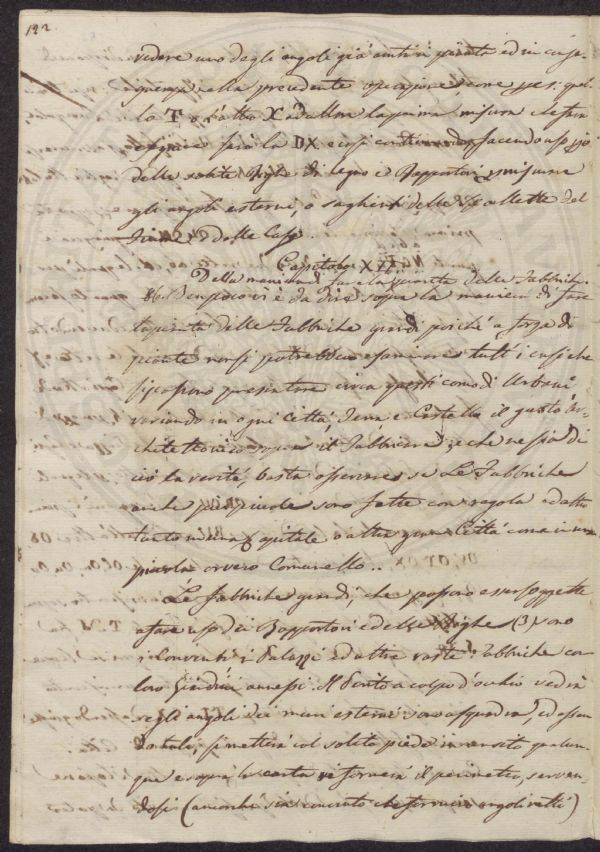 122.
vedere uno degli angoli già
nella precedente operazione come
T o l'altro X ed allora la prima misura
sarà la DX e così facendo uso
delle solite righe di legno e Rapportori
gli angoli esterni, o saglienti delle Spallette del
Fiume e delle Case.
Capitolo XIX
Della maniera di fare la pianta delle Fabbriche
86. Ben poco vi è da dire sopra la maniera di fare
la pianta delle Fabbriche grandi poiché a forza di
piante non si potrebbero esaminare tutti i casi che
si possono presentare circa questi comodi Urbani
variando in ogni Città, Terra e Castello il gusto Ar-
chitettonico sopra il Fabbricare; e che ne sia di
ciò la verità, basta osservare se Le Fabbriche
anche più piccole sono fatte con regola ed altro
in una Capitale o altra gran Città come in una
piccola ovvero Comunello..
Le Fabbriche grandi, che possono esser soggette
a fare uso dei Rapportori e delle Righe (3) sono
i Conventi i Palazzi ed altre vaste Fabbriche con
loro Giardini annessi. Il Perito a colpo d'occhio vedrà
se gli angoli dei muri esterni sono a squadra, ed essen-
do tali, si metterà col solito piede in transito qualun-
que e sopra la carta vi formerà il perimetro, serven-
dosi (ancorchè sia che formino angoli retti)